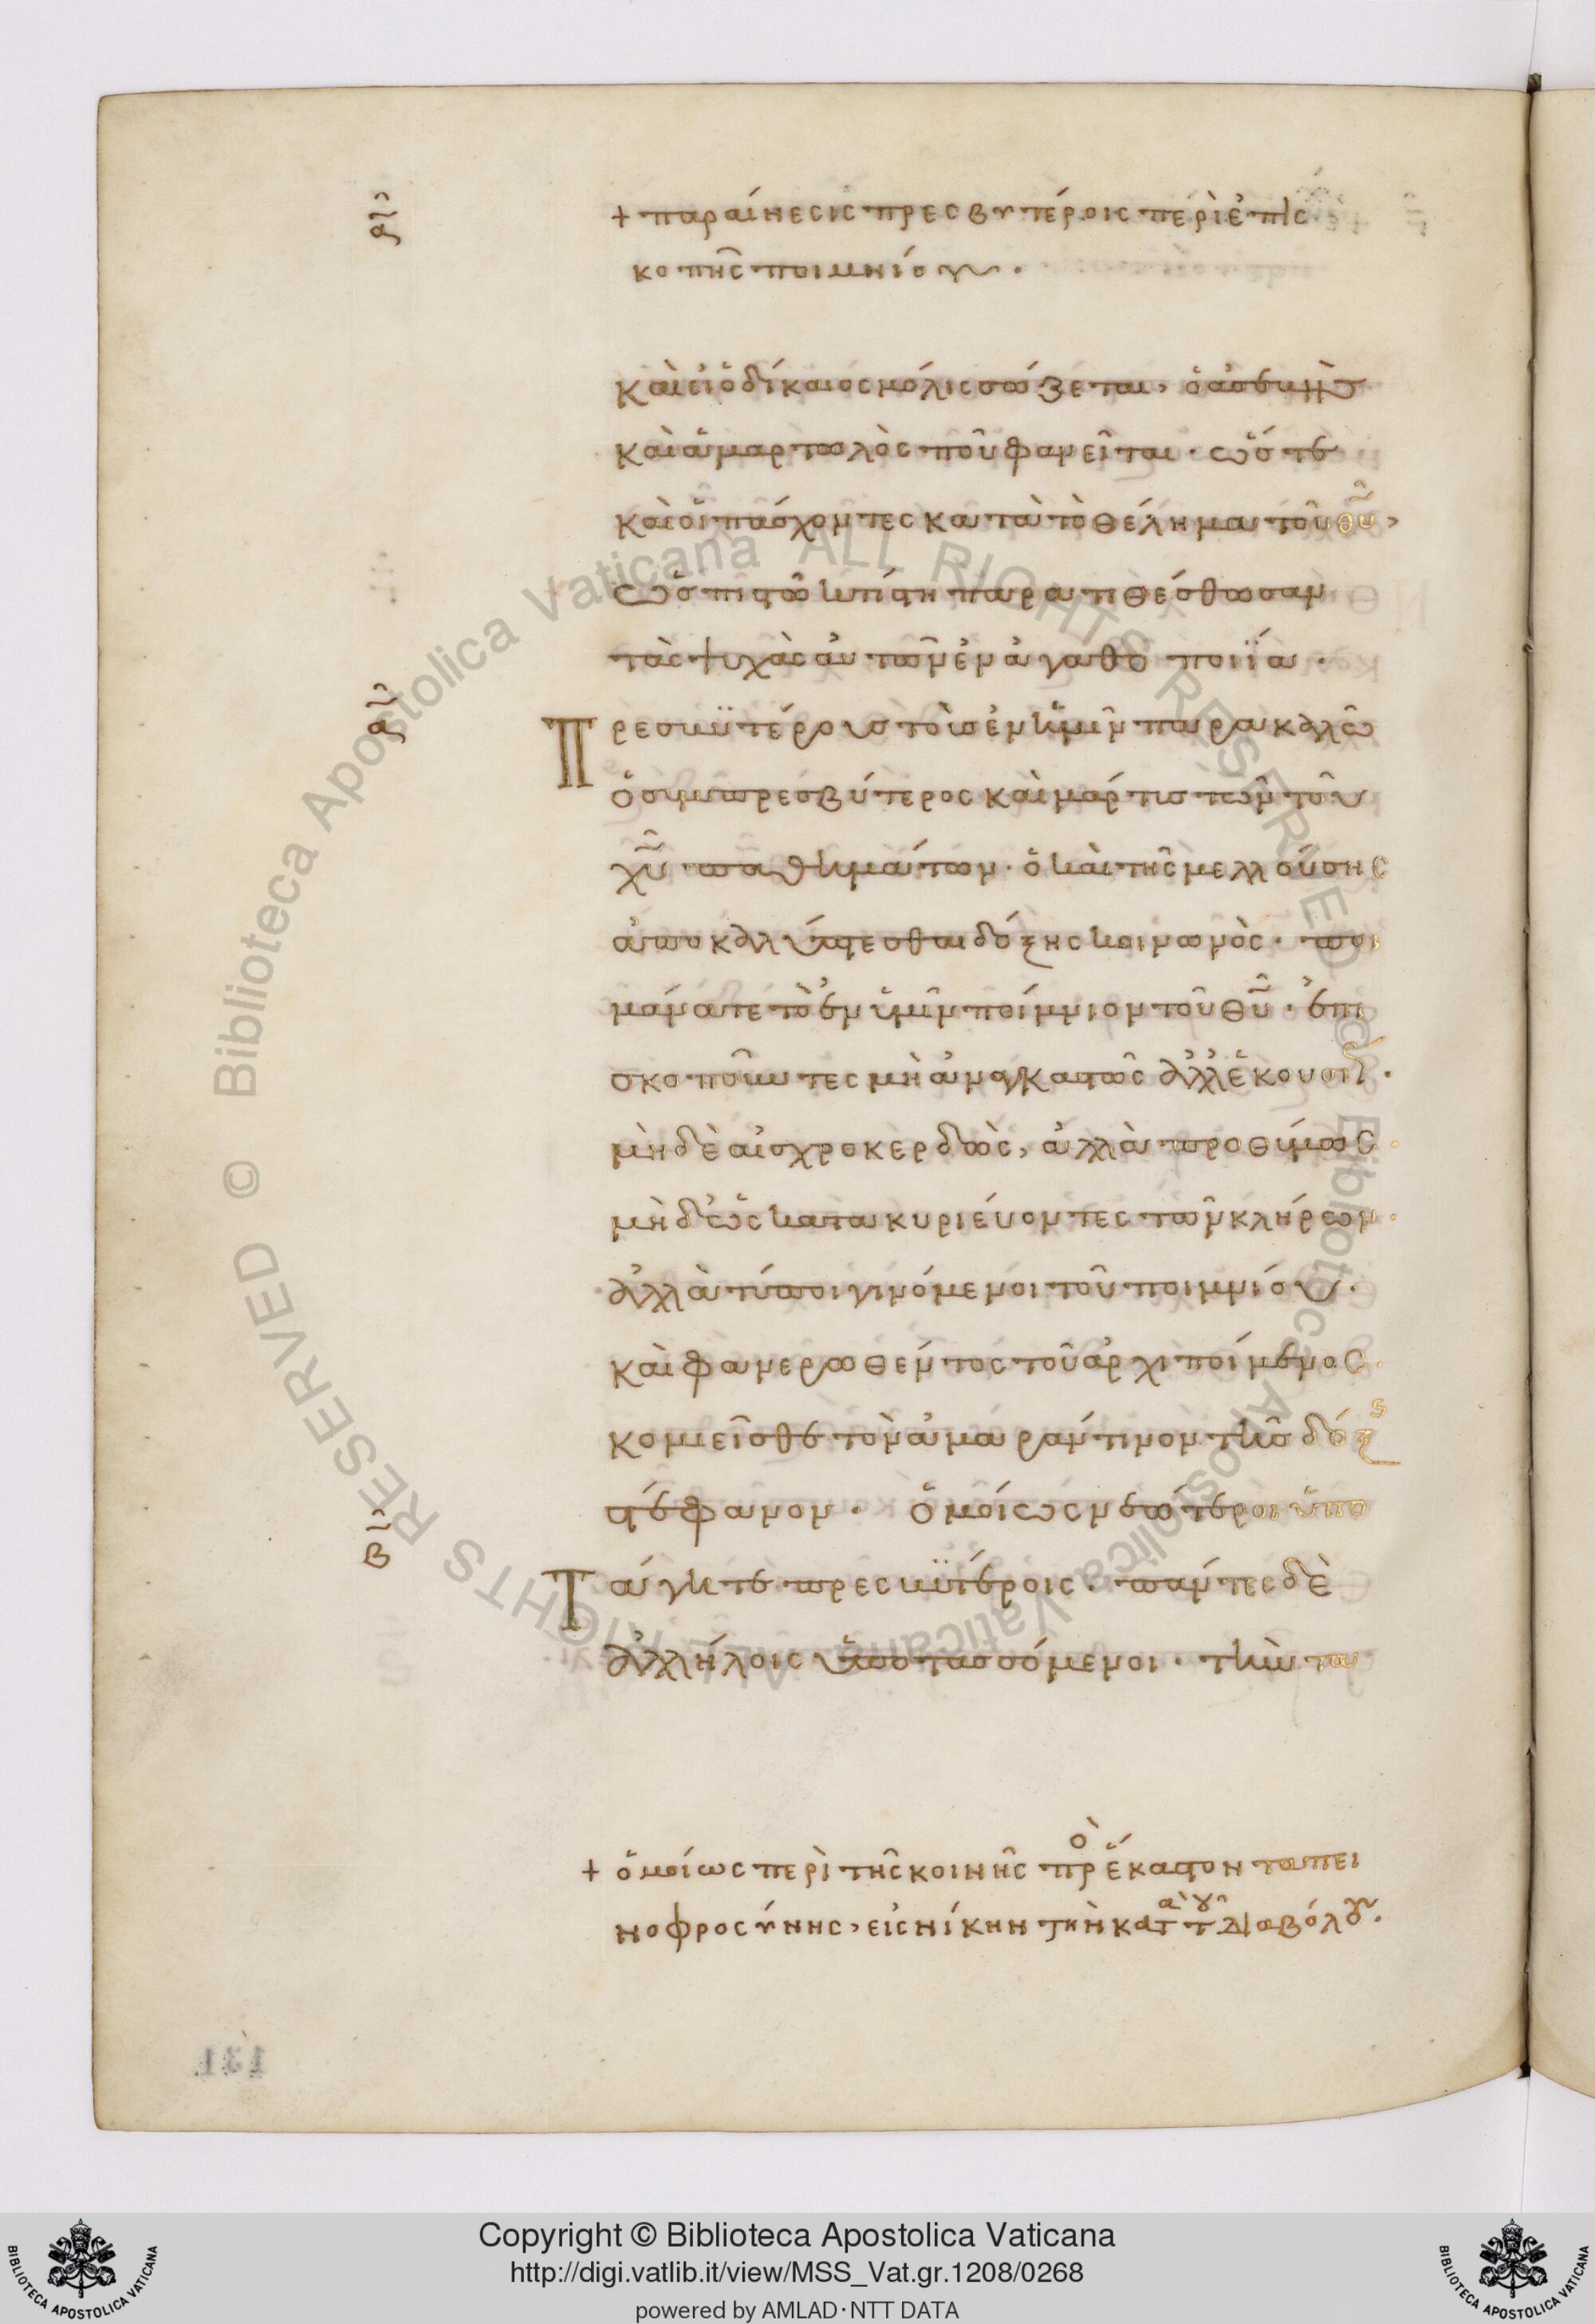 + παραίνεσις πρεσβυτέροις περὶ ἐπισ
κοπῆς ποιμνίου.
καὶ εἰ ὁ δίκαιος μόλις σώζεται, ὁ ἀσεβὴς
καὶ ἁμαρτωλὸς ποῦ φανεῖται· ὥστε
καὶ οἱ πάσχοντες κατὰ τὸ θέλημα τοῦ θῦ,
ὡς πιστῶ κτίστη παρατιθέσθωσαν
τὰς ψυχὰς αὐτῶν ἐν ἀγαθοποιΐα·
Πρεσβϋτέρους τοὺς ἐν ὑμῖν παρακαλῶ
ὁ συμπρεσβύτερος καὶ μάρτυς τῶν τοῦ
χῦ παθημάτων· ὁ καὶ τῆς μελλούσης
ἀποκαλύπτεσθαι δόξης κοινωνὸς· ποι
μάνατε τὸ ἐν ὑμῖν ποίμνιον τοῦ θῦ· ἐπι
σκοποῦντες μὴ ἀναγκαστῶς ἀλλ' ἑκουσί·
μηδὲ αἰσχροκερδῶς, ἀλλὰ προθύμως·
μηδ' ὡς κατακυριεύοντες τῶν κλήρων·
ἀλλὰ τύποι γινόμενοι τοῦ ποιμνίου·
καὶ φανερωθέντος τοῦ ἀρχιποίμενος·
κομιεῖσθε τὸν ἀμαράντινον τῆς δόξης
στέφανον· ὁμοίως νεώτεροι ὑπο
Τάγητε πρεσβϋτέροις· πάντες δὲ
ἀλλήλοις ὑποτασσόμενοι· τὴν τα
+ ὁμοίως περὶ τῆς κοινῆς πρὸ ἕκαστον ταπει
νοφροσύνης, εἰς νίκην τὴν κατὰ τοῦ διαβόλου.
αἰ
αἰ
βἰ
131
Copyright © Biblioteca Apostolica Vaticana
http://digi.vatlib.it/view/MSS_Vat.gr.1208/0268
powered by AMLAD·NTT DATA
BIBLIOTECA APOSTOLICA VATICANA
BIBLIOTECA APOSTOLICA VATICANA
Biblioteca Apostolica Vaticana ALL RIGHTS RESERVED © Biblioteca Apostolica Vaticana ALL RIGHTS RESERVED ©